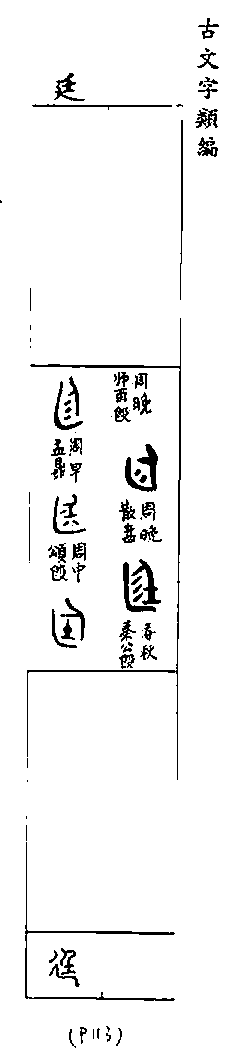 古文字類編
廷
周早
盂鼎
周中
頌𣪘
周晚
师酉𣪘
周晚
散盘
春秋
秦公𣪘
(P113)